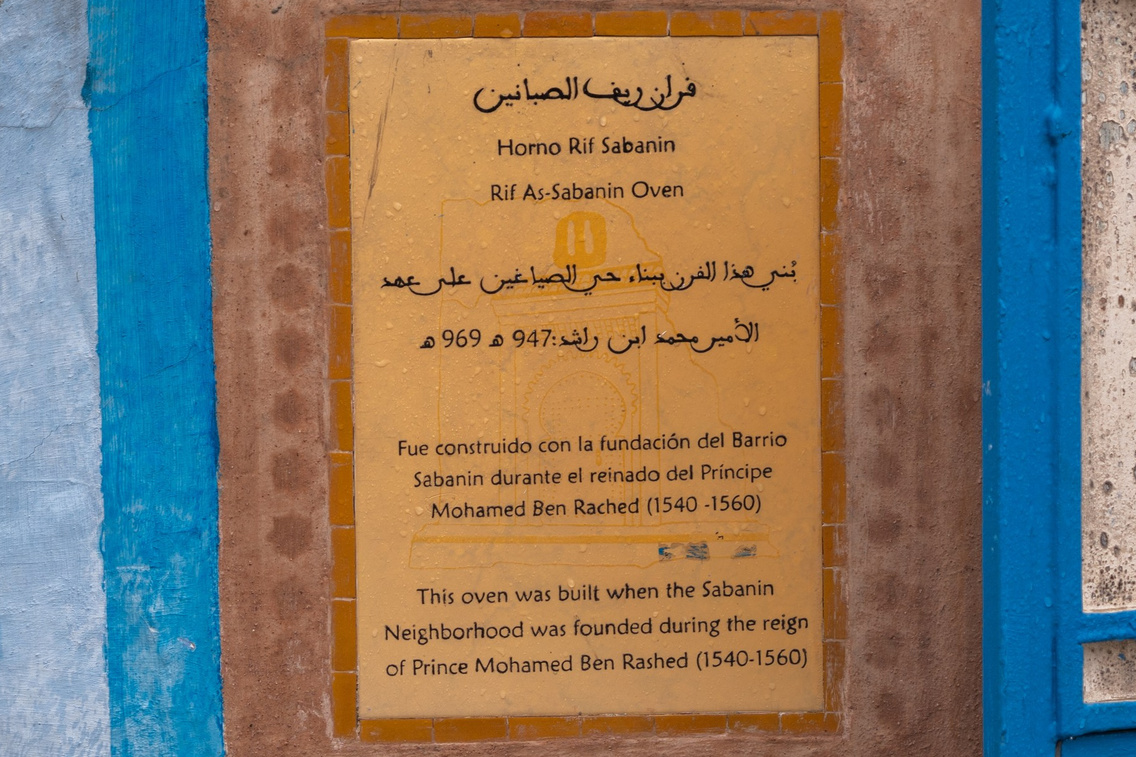 فران ريف الصبانين
Horno Rif Sabanin
Rif As-Sabanin Oven
بُني هذا الفرن ببناء حي الصياغين على عهد
الأمير محمد ابن راشد: 947 ه 969 ه
Fue construido con la fundación del Barrio
Sabanin durante el reinado del Príncipe
Mohamed Ben Rached (1540 -1560)
This oven was built when the Sabanin
Neighborhood was founded during the reign
of Prince Mohamed Ben Rashed (1540-1560)